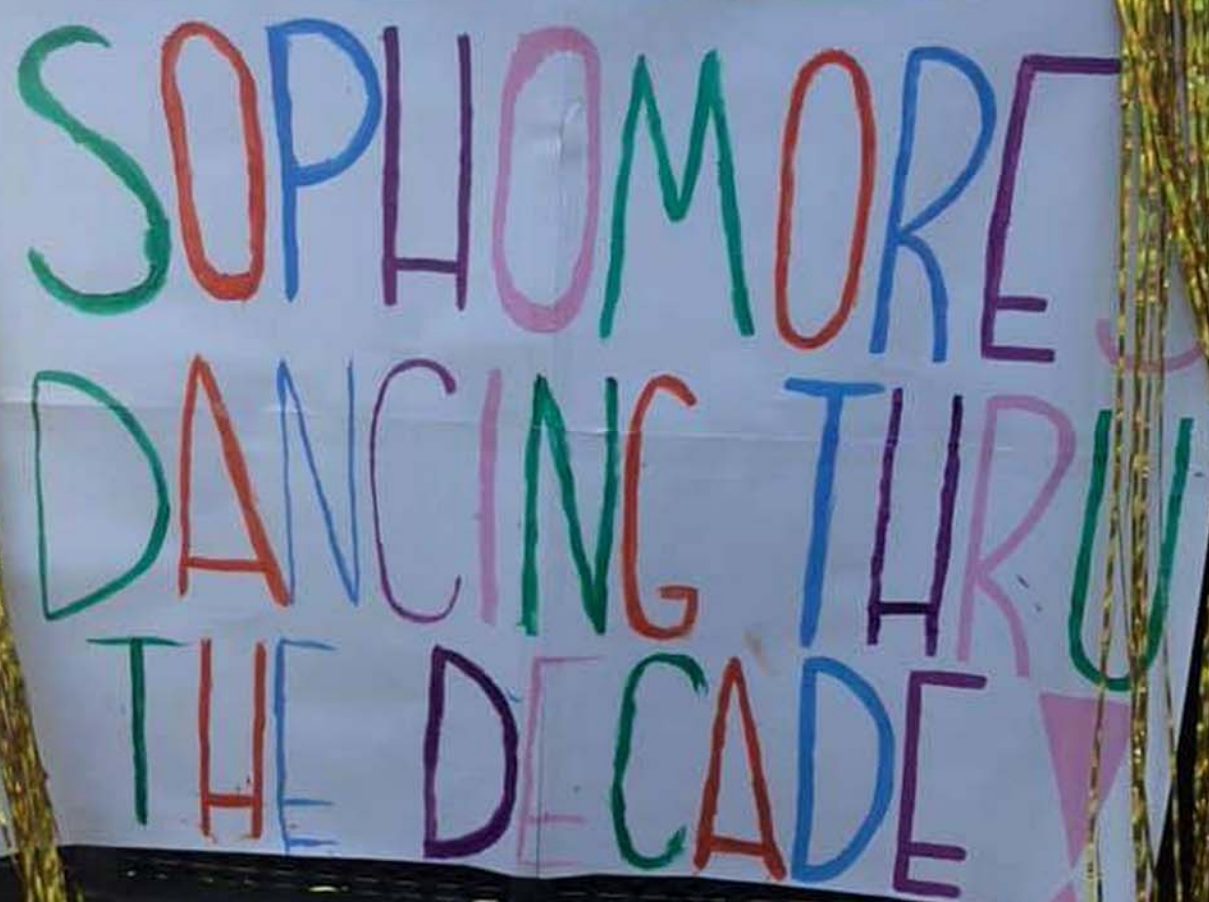 SOPHOMORES
DANCING THRU
THE DECADE!